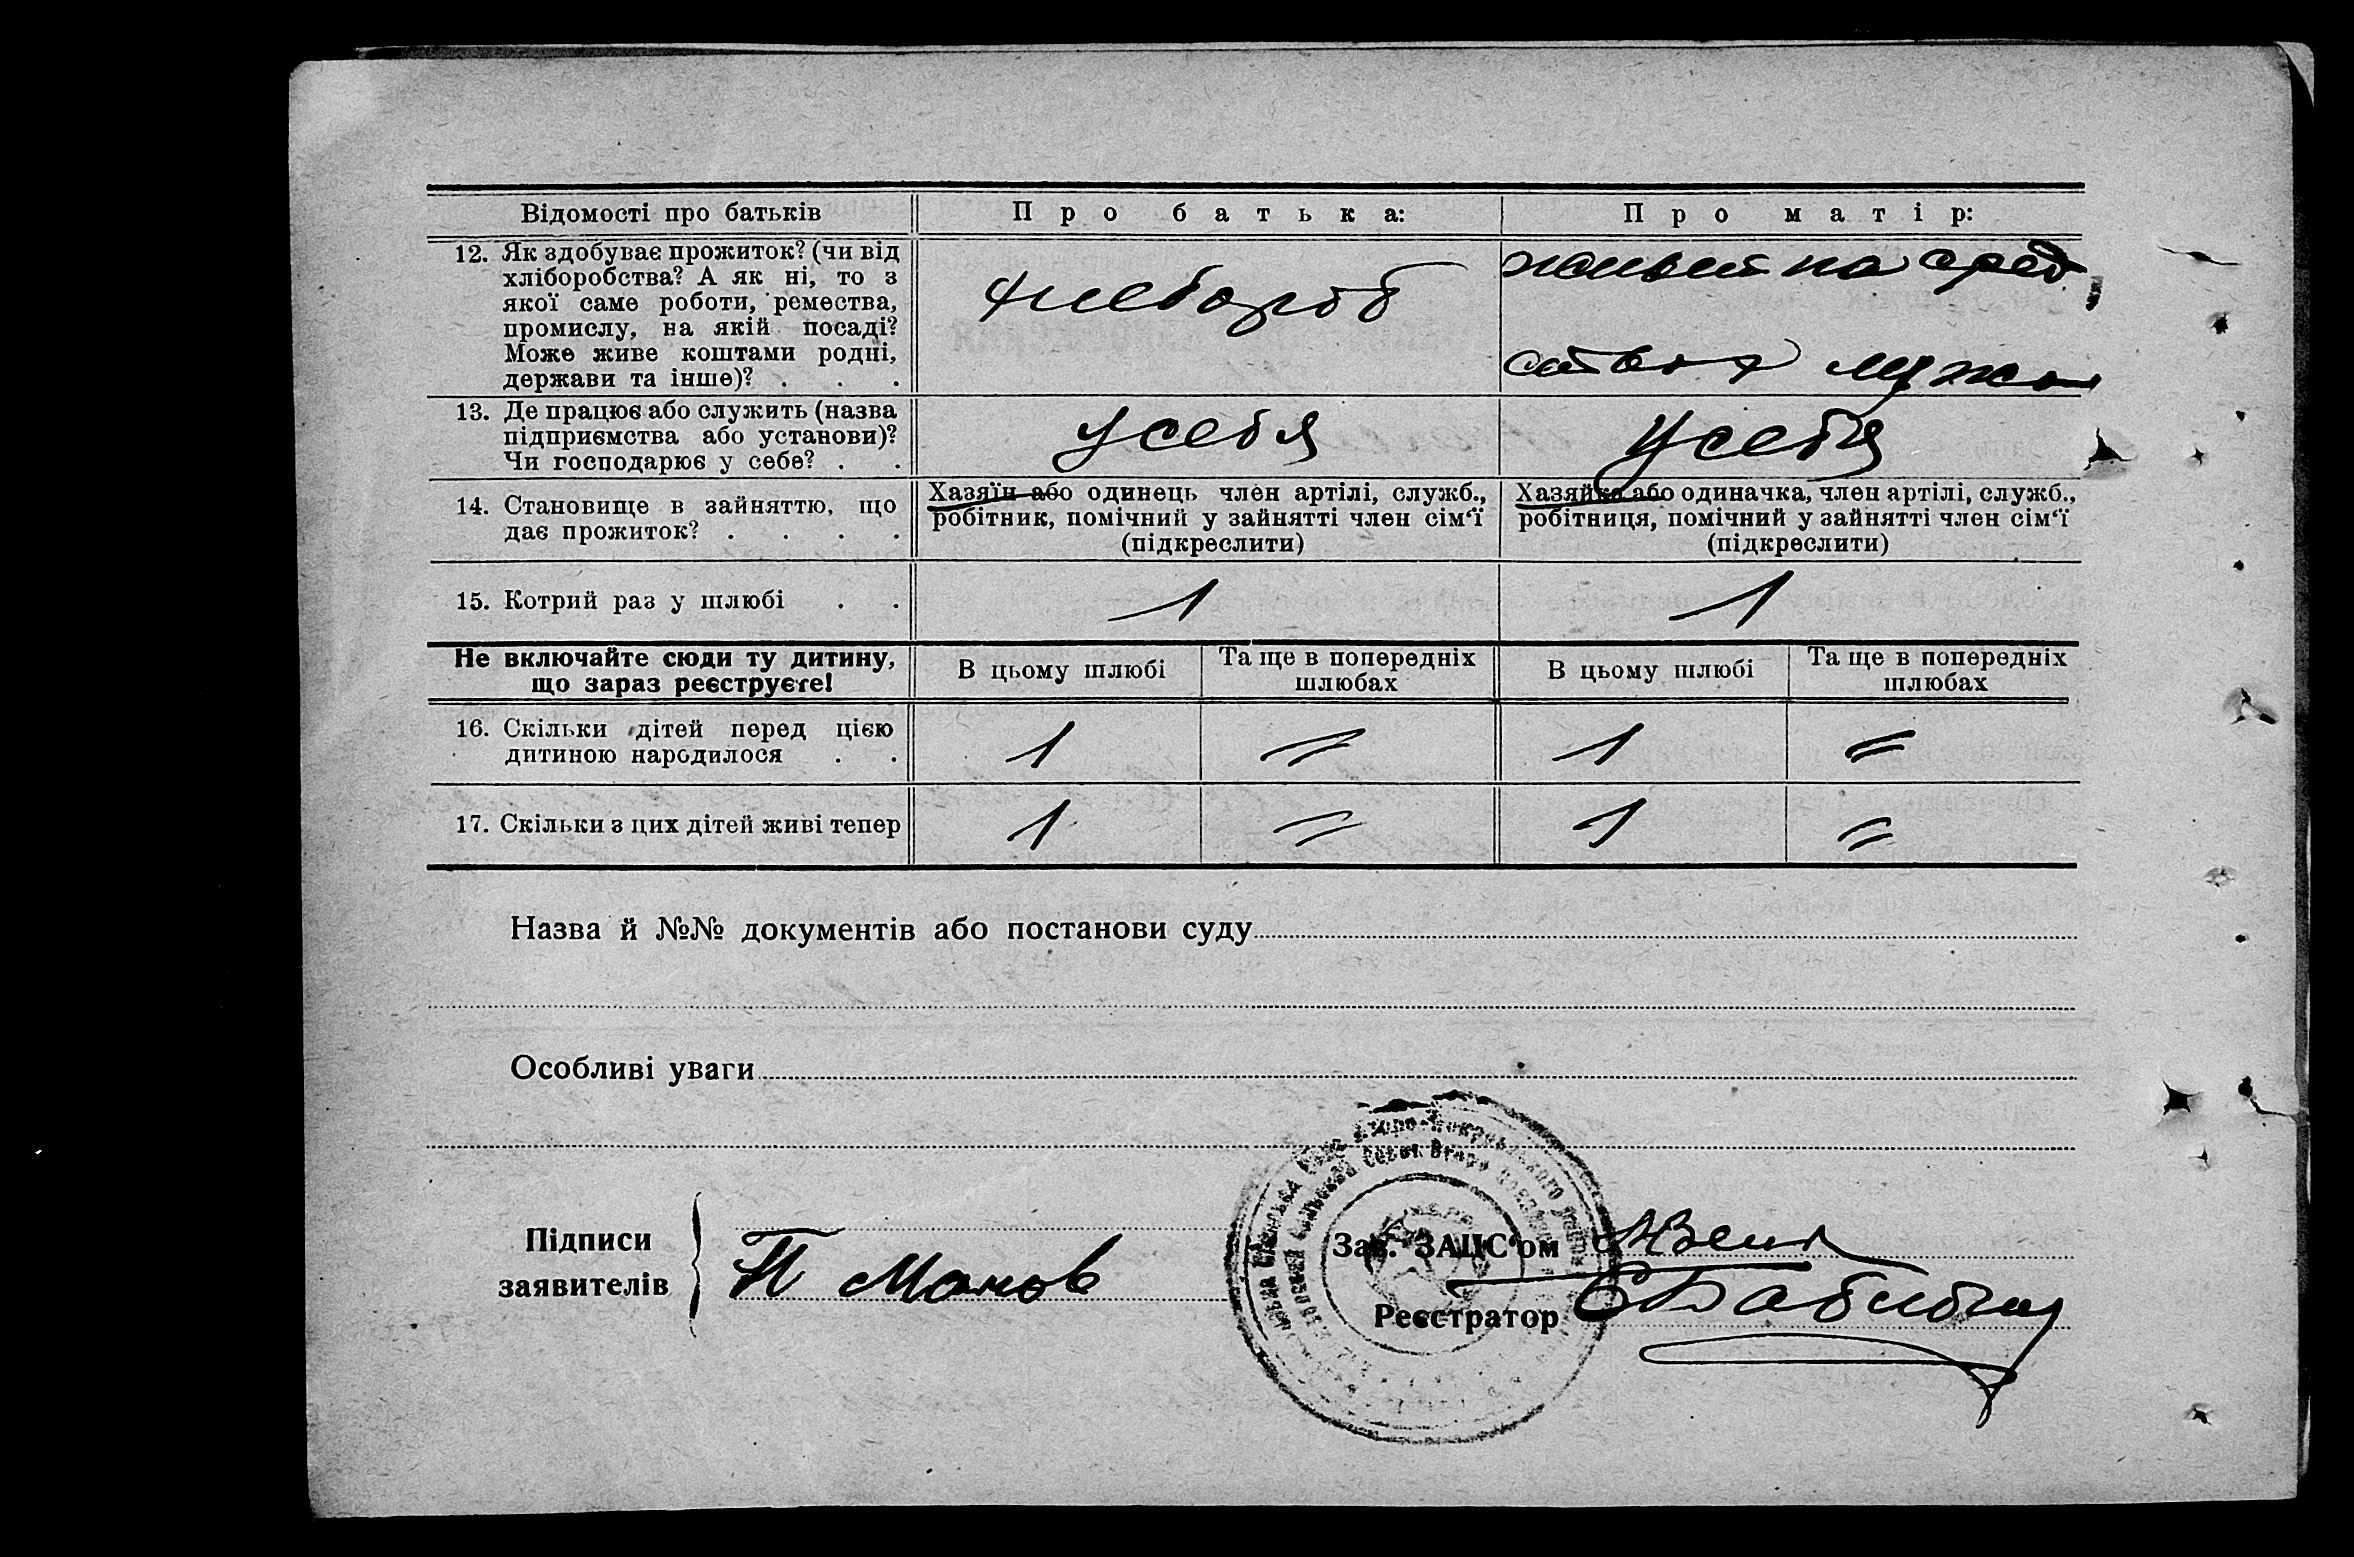 Відомості про батьків
Про батька:
Про матір:
12. Як здобуває прожиток? (чи від
хліборобства? А як ні, то з
якої саме роботи, ремества,
промислу, на якій посаді?
Може живе коштами родні,
держави та інше)? . . .
хлебороб
на сред
ствах мужа
13. Де працює або служить (назва
підприємства або установи)?
Чи господарює у себе? . .
у себя
у себя
14. Становище в зайняттю, що
дає прожиток? . . . .
Хазяїн або одинець член артілі, служб.,
робітник, помічний у зайнятті член сім‘ї
(підкреслити)
Хазяйка або одиначка, член артілі, служб.,
робітниця, помічний у зайнятті член сім‘ї
(підкреслити)
15. Котрий раз у шлюбі . .
1
1
Не включайте сюди ту дитину,
що зараз реєструєте!
В цьому шлюбі
Та ще в попередніх
шлюбах
В цьому шлюбі
Та ще в попередніх
шлюбах
16. Скільки дітей перед цією
дитиною народилося . .
1
=
1
=
17. Скільки з цих дітей живі тепер
1
=
1
=
Назва й №№ документів або постанови суду
Особливі уваги
Підписи
заявителів
Зав. ЗАЦС‘ом
Реєстратор